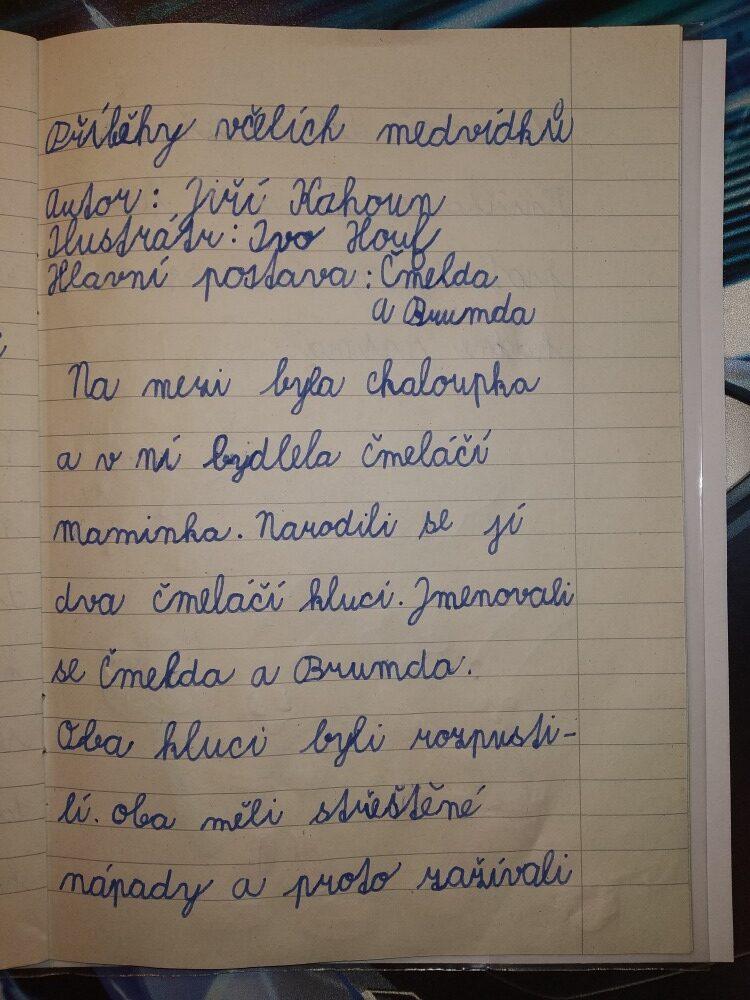 Příběhy včelích medvídků
Autor: Jiří Kahoun
Ilustrátr: Ivo Houf
Hlavní postava: Čmelda
a Brumda
Na mezi byla chaloupka
a v ní bydlela čmeláčí
maminka. Narodili se jí
dva čmeláčí kluci. Jmenovali
se Čmelda a Brumda.
Oba kluci byli rozpusti-
lí. Oba měli střeštěné
nápady a proto zažívali